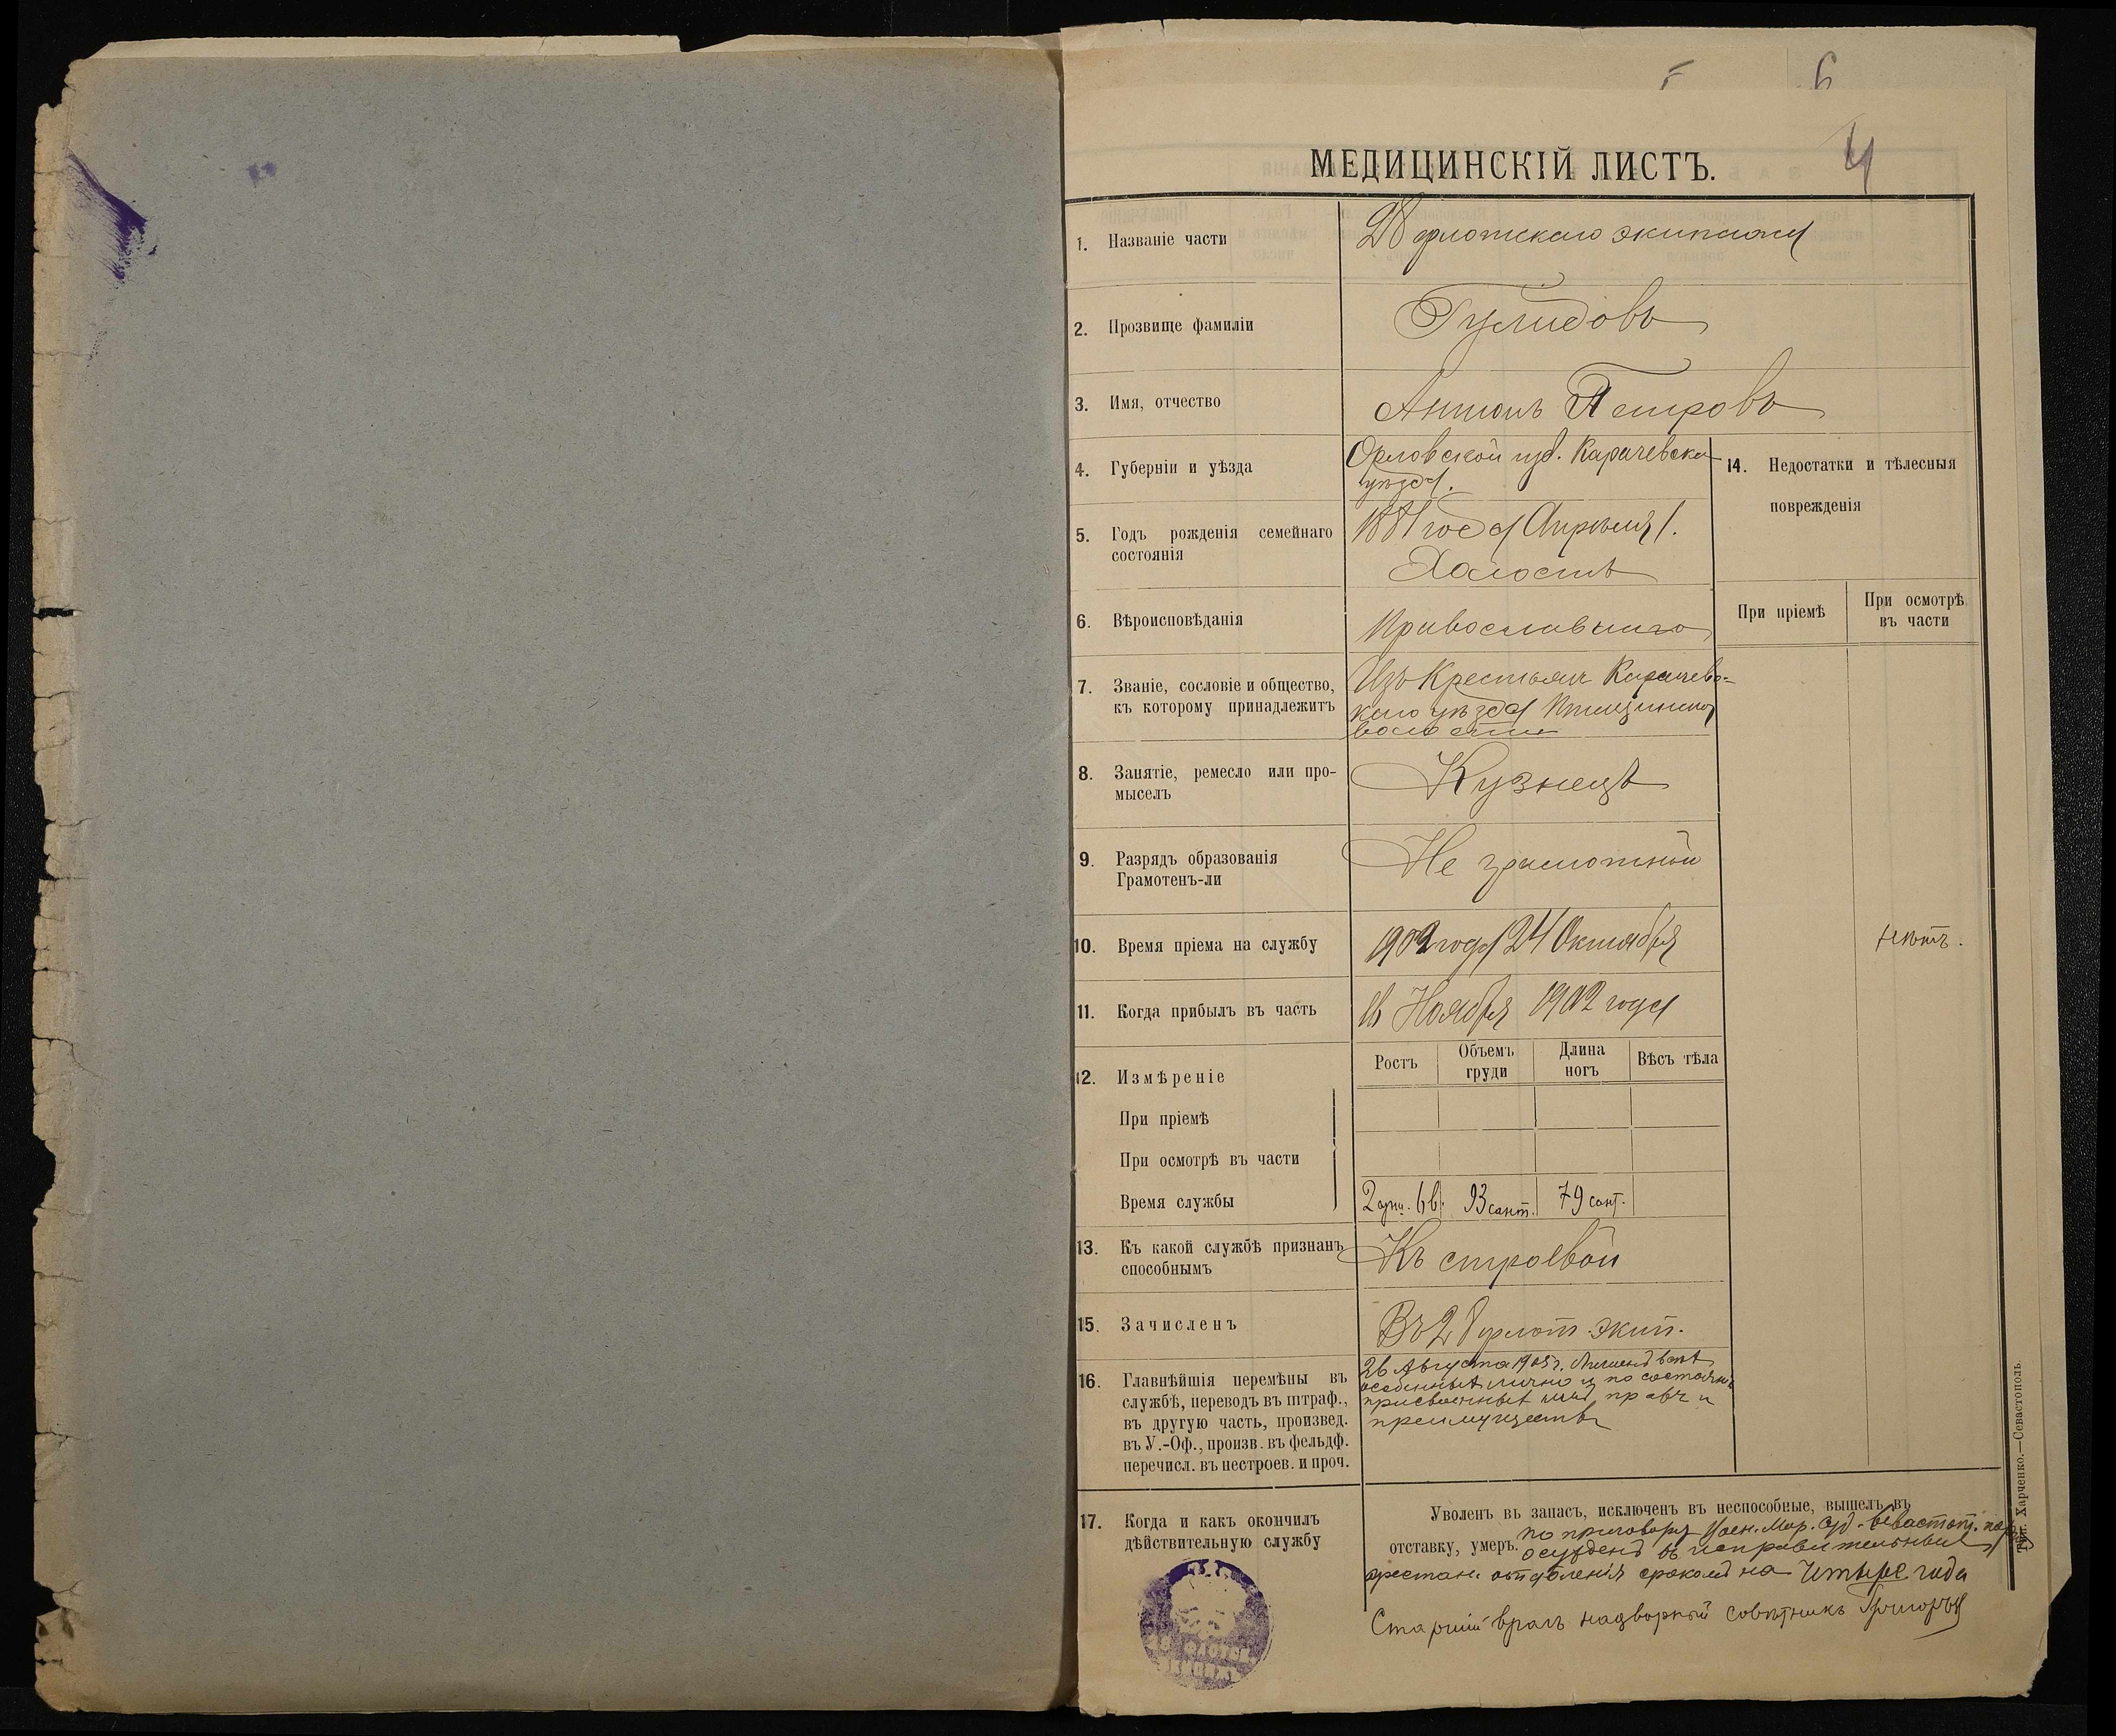 6
4
МЕДИЦИНСКІЙ ЛИСТЪ.
1. Названіе части
28 флотскаго экипажа
2. Прозвище фамиліи
Гулидовъ
3. Имя, отчество
Антонъ Петровъ
4. Губерніи и уѣзда
Орловской губ. Карачевска
уѣзда.
14. Недостатки и тѣлесныя
поврежденія
5. Годъ рожденія семейнаго
состоянія
1881 года Апрѣля 1.
Холостъ
При пріемѣ
При осмотрѣ
въ части
6. Вѣроисповѣданія
Православнаго
7. Званіе, сословіе и общество,
къ которому принадлежитъ
Изъ Крестьянъ Карачевс-
каго уѣзда
волости
8. Занятіе, ремесло или про-
мыселъ
Кузнецъ
9. Разрядъ образованія
Грамотенъ-ли
Не грамотной
10. Время пріема на службу
1902 года 24 Октября
нѣтъ.
11. Когда прибылъ въ часть
Ноября 1902 года
12. Измѣреніе
Ростъ
Объемъ
груди
Длина
ногъ
Вѣсъ тѣла
При пріемѣ
При осмотрѣ въ части
Время службы
2 арш. 6 в. 93 сант. 79 сант.
13. Къ какой службѣ признанъ
способнымъ
Къ строевой
15. Зачисленъ
Въ 28 флот. экип.
16. Главнѣйшія перемѣны въ
службѣ, переводъ въ штраф.,
въ другую часть, произвед.
въ У.-Оф., произв. въ фельдф.
перечисл. въ нестроев. и проч.
26 Августа 1905 г. Лишенъ всѣхъ
особенныхъ лично и по состоянію
присвоенныхъ правъ и
преимуществъ
17. Когда и какъ окончилъ
дѣйствительную службу
Уволенъ въ запасъ, исключенъ въ неспособные, вышелъ въ
отставку, умеръ.
по приговору Воен. Мор. Суд. Севастоп. порта
осужденъ въ исправительныя
арестан. отдѣленія срокомъ на четыре года
Старшій врачъ надворный совѣтникъ
Тип. Харченко.—Севастополь.